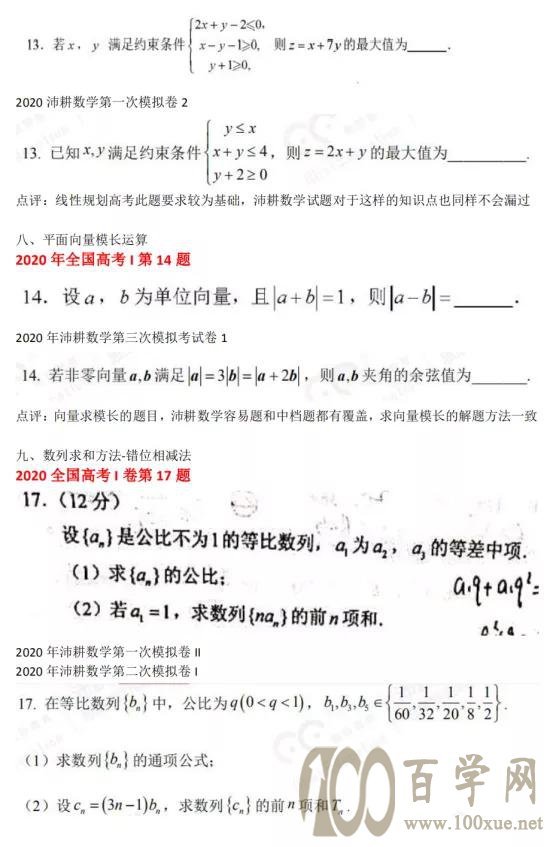 13. 若x，y 满足约束条件 { 2x+y-2≤0, x-y-1≥0, y+1≥0, 则z=x+7y的最大值为______.
2020 沛耕数学第一次模拟卷 2
13. 已知x,y满足约束条件 { y≤x x+y≤4 y+2≥0 ，则z=2x+y的最大值为__________.
点评：线性规划高考此题要求较为基础，沛耕数学试题对于这样的知识点也同样不会漏过
八、平面向量模长运算
2020 年全国高考 I 第 14 题
14. 设a，b为单位向量，且|a+b|=1，则|a-b|=______.
2020 年沛耕数学第三次模拟考试卷 1
14. 若非零向量a,b满足|a|=3|b|=|a+2b|，则a,b夹角的余弦值为_______.
点评：向量求模长的题目，沛耕数学容易题和中档题都有覆盖，求向量模长的解题方法一致
九、数列求和方法-错位相减法
2020 全国高考 I 卷第 17 题
17.（12分）
设{aₙ}是公比不为1的等比数列，a₁为a₂，a₃的等差中项.
（1）求{aₙ}的公比；
a₁q+a₁q²=
（2）若a₁=1，求数列{naₙ}的前n项和.
2020 年沛耕数学第一次模拟卷 II
2020 年沛耕数学第二次模拟卷 I
17. 在等比数列{bₙ}中，公比为q(0<q<1)，b₁,b₃,b₅∈{1/60,1/32,1/20,1/8,1/2}.
（1）求数列{bₙ}的通项公式；
（2）设cₙ=(3n-1)bₙ，求数列{cₙ}的前n项和Tₙ.
100百学网
www.100xue.net